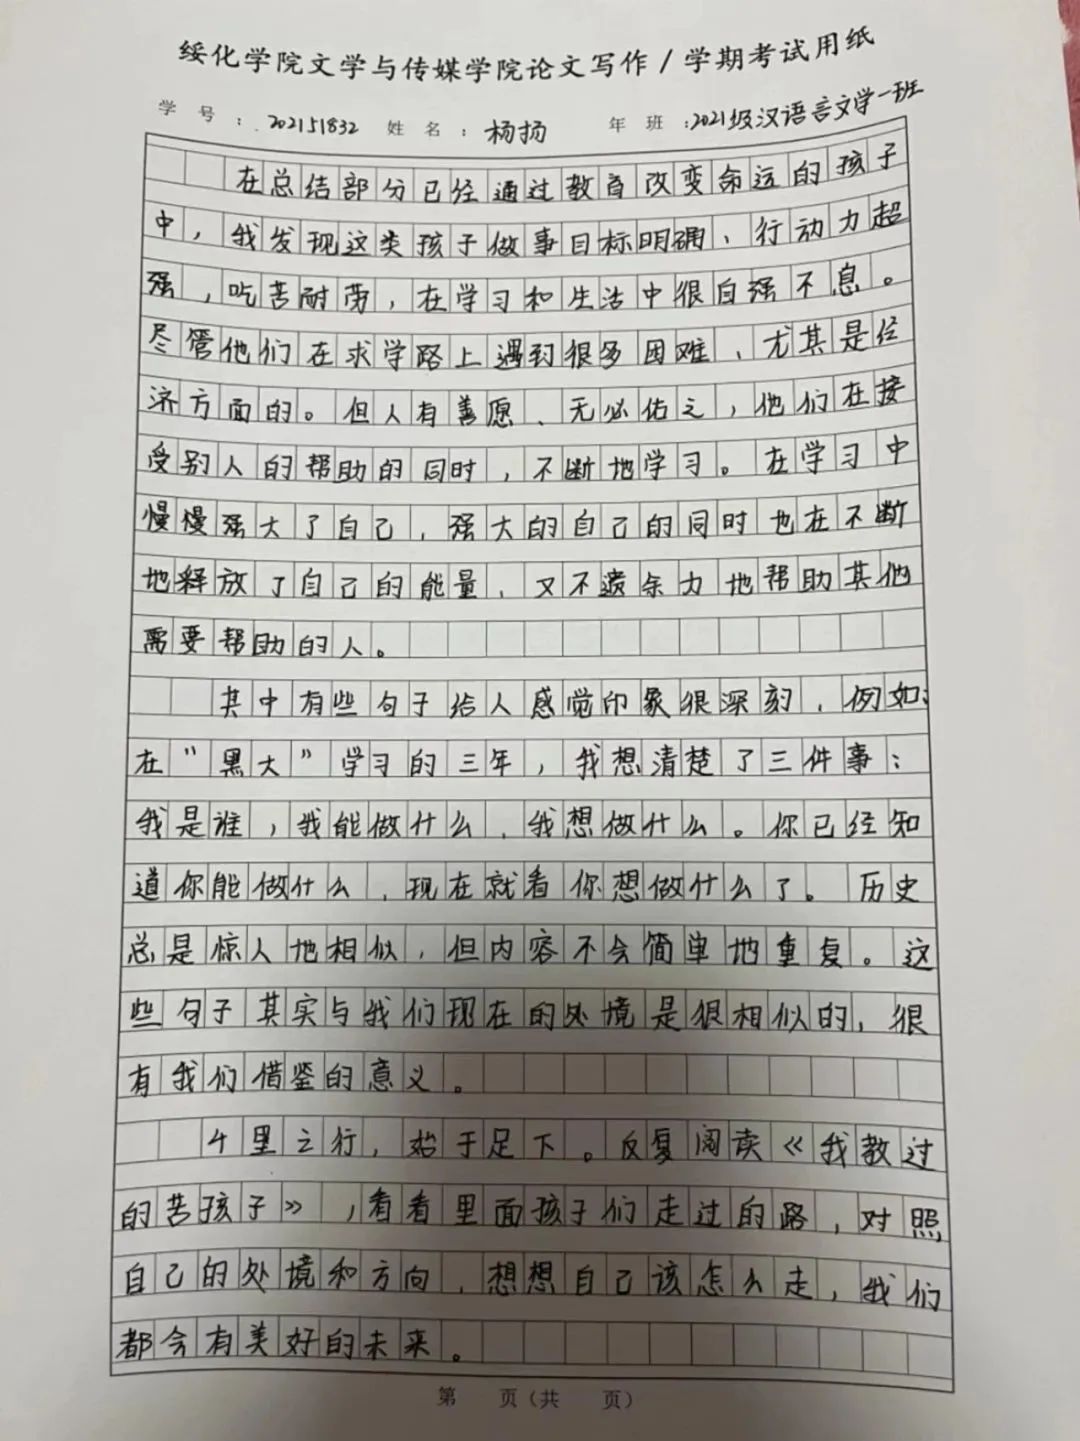 绥化学院文学与传媒学院论文写作/学期考试用纸
学号：202151832 姓名：杨扬 年班：2021级汉语言文学一班
在总结部分已经通过教育改变命运的孩子
中，我发现这类孩子做事目标明确、行动力超
强，吃苦耐劳，在学习和生活中很自强不息。
尽管他们在求学路上遇到很多困难、尤其是经
济方面的。但人有善愿、无必佑之，他们在接
受别人的帮助的同时，不断地学习。在学习中
慢慢强大了自己，强大的自己的同时也在不断
地释放了自己的能量，又不遗余力地帮助其他
需要帮助的人。
其中有些句子给人感觉印象很深刻，例如：
在“黑大”学习的三年，我想清楚了三件事：
我是谁，我能做什么，我想做什么。你已经知
道你能做什么，现在就看你想做什么了。历史
总是惊人地相似，但内容不会简单地重复。这
些句子其实与我们现在的处境是很相似的，很
有我们借鉴的意义。
千里之行，始于足下。反复阅读《我教过
的苦孩子》，看看里面孩子们走过的路，对照
自己的处境和方向，想想自己该怎么走，我们
都会有美好的未来。
第 页（共 页）